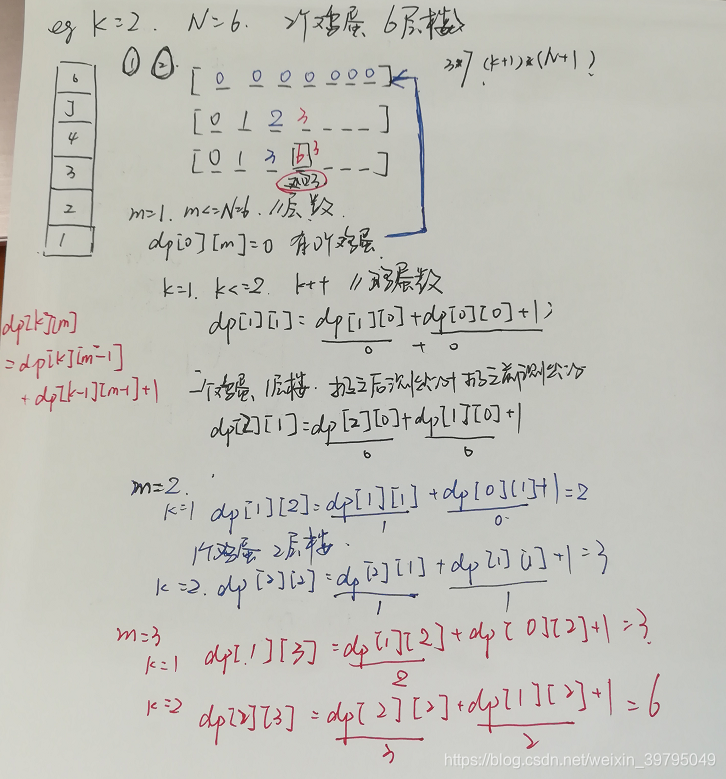 eg k=2. N=6. 2个鸡蛋 6层楼
① ②
3*7 (k+1)*(N+1)
6
5
4
3
2
1
[ 0 0 0 0 0 0 0 ]
[ 0 1 2 3 _ _ _ ]
[ 0 1 3 6 3 _ _ _ ]
返回3
m=1. m<=N=6. //层数.
dp[0][m]=0 有0个鸡蛋.
k=1. k<=2. k++ //鸡蛋数
dp[1][1]=dp[1][0]+dp[0][0]+1;
0 + 0
dp[k][m]
=dp[k][m-1]
+dp[k-1][m-1]+1
一个鸡蛋 1层楼.
dp[2][1]=dp[2][0]+dp[1][0]+1
0 0
m=2.
k=1 dp[1][2]=dp[1][1]+dp[0][1]+1=2
1 0
1个鸡蛋 2层楼.
k=2. dp[2][2]=dp[2][1]+dp[1][1]+1=3
1 1
m=3
k=1 dp[1][3]=dp[1][2]+dp[0][2]+1=3
2
k=2 dp[2][3]=dp[2][2]+dp[1][2]+1=6
3 2
https://blog.csdn.net/weixin_39795049